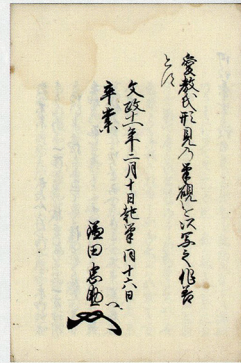 愛教氏形見乃筆硯を以写之作者
と云
文政十一年二月十日執筆同十六日
卒業
鎌田忠助